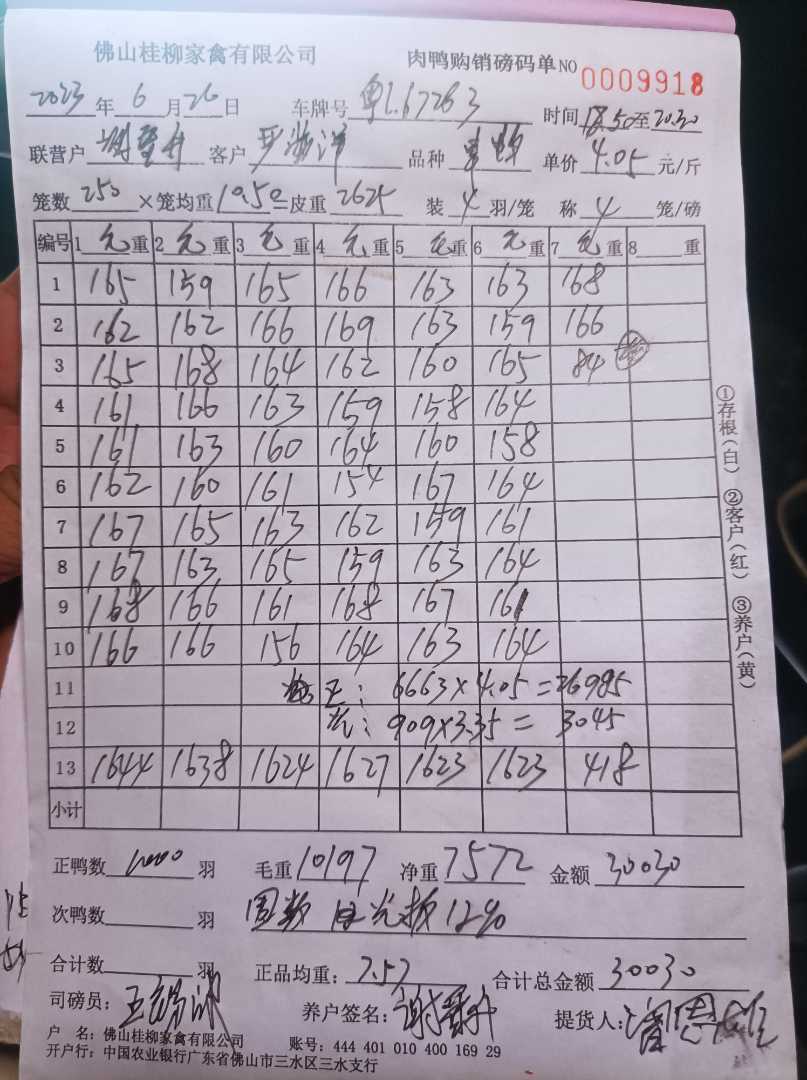 佛山桂柳家禽有限公司 肉鸭购销磅码单 NO 0009918
2023年6月26日 车牌号 粤L67263 时间 18.50至20.30
联营户 谢 客户 品种 单价 4.05 元/斤
笼数 250 ×笼均重 10.50 =皮重 2625 装 4 羽/笼 称 4 笼/磅
编号 1 毛重 2 毛重 3 毛重 4 毛重 5 毛重 6 毛重 7 毛重 8 重
1 165 159 165 166 163 163 168
2 162 162 166 169 163 159 166
3 165 168 164 162 160 165 84
4 161 166 163 159 158 164
5 161 163 160 164 160 158
6 162 160 161 154 167 164
7 167 165 163 162 159 161
8 167 163 165 159 163 164
9 168 166 161 168 167 161
10 166 166 156 164 163 164
11 正: 6663×4.05=26985
12 909×3.35=3045
13 1644 1638 1624 1627 1623 1623 418
小计
正鸭数 1000 羽 毛重 10197 净重 7572 金额 30030
次鸭数 羽 12%
合计数 羽 正品均重: 7.57 合计总金额 30030
司磅员: 养户签名: 谢 提货人:
户 名: 佛山桂柳家禽有限公司 账号: 444 401 010 400 169 29
开户行: 中国农业银行广东省佛山市三水区三水支行
①存根(白) ②客户(红) ③养户(黄)